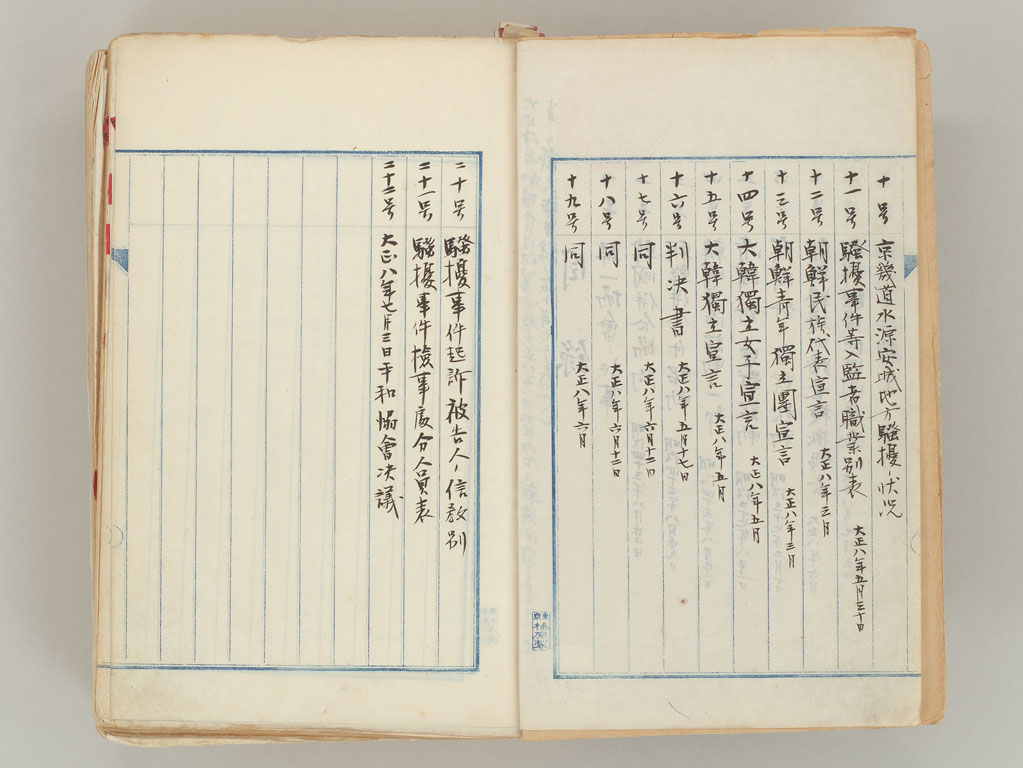 十号 京畿道水源安城地方騒擾ノ状況
十一号 騒擾事件等入監者職業別表 大正八年五月三十日
十二号 朝鮮民族代表宣言 大正八年三月
十三号 朝鮮青年獨立團宣言 大正八年三月
十四号 大韓獨立女子宣言 大正八年五月
十五号 大韓獨立宣言 大正八年五月
十六号 判决書 大正八年五月十七日
十七号 同 大正八年六月十二日
十八号 同 大正八年六月十二日
十九号 同 大正八年六月
二十号 騒擾事件起訴被告人ノ信教別
二十一号 騒擾事件檢事處分人員表
二十二号 大正八年七月三日平和協會决議